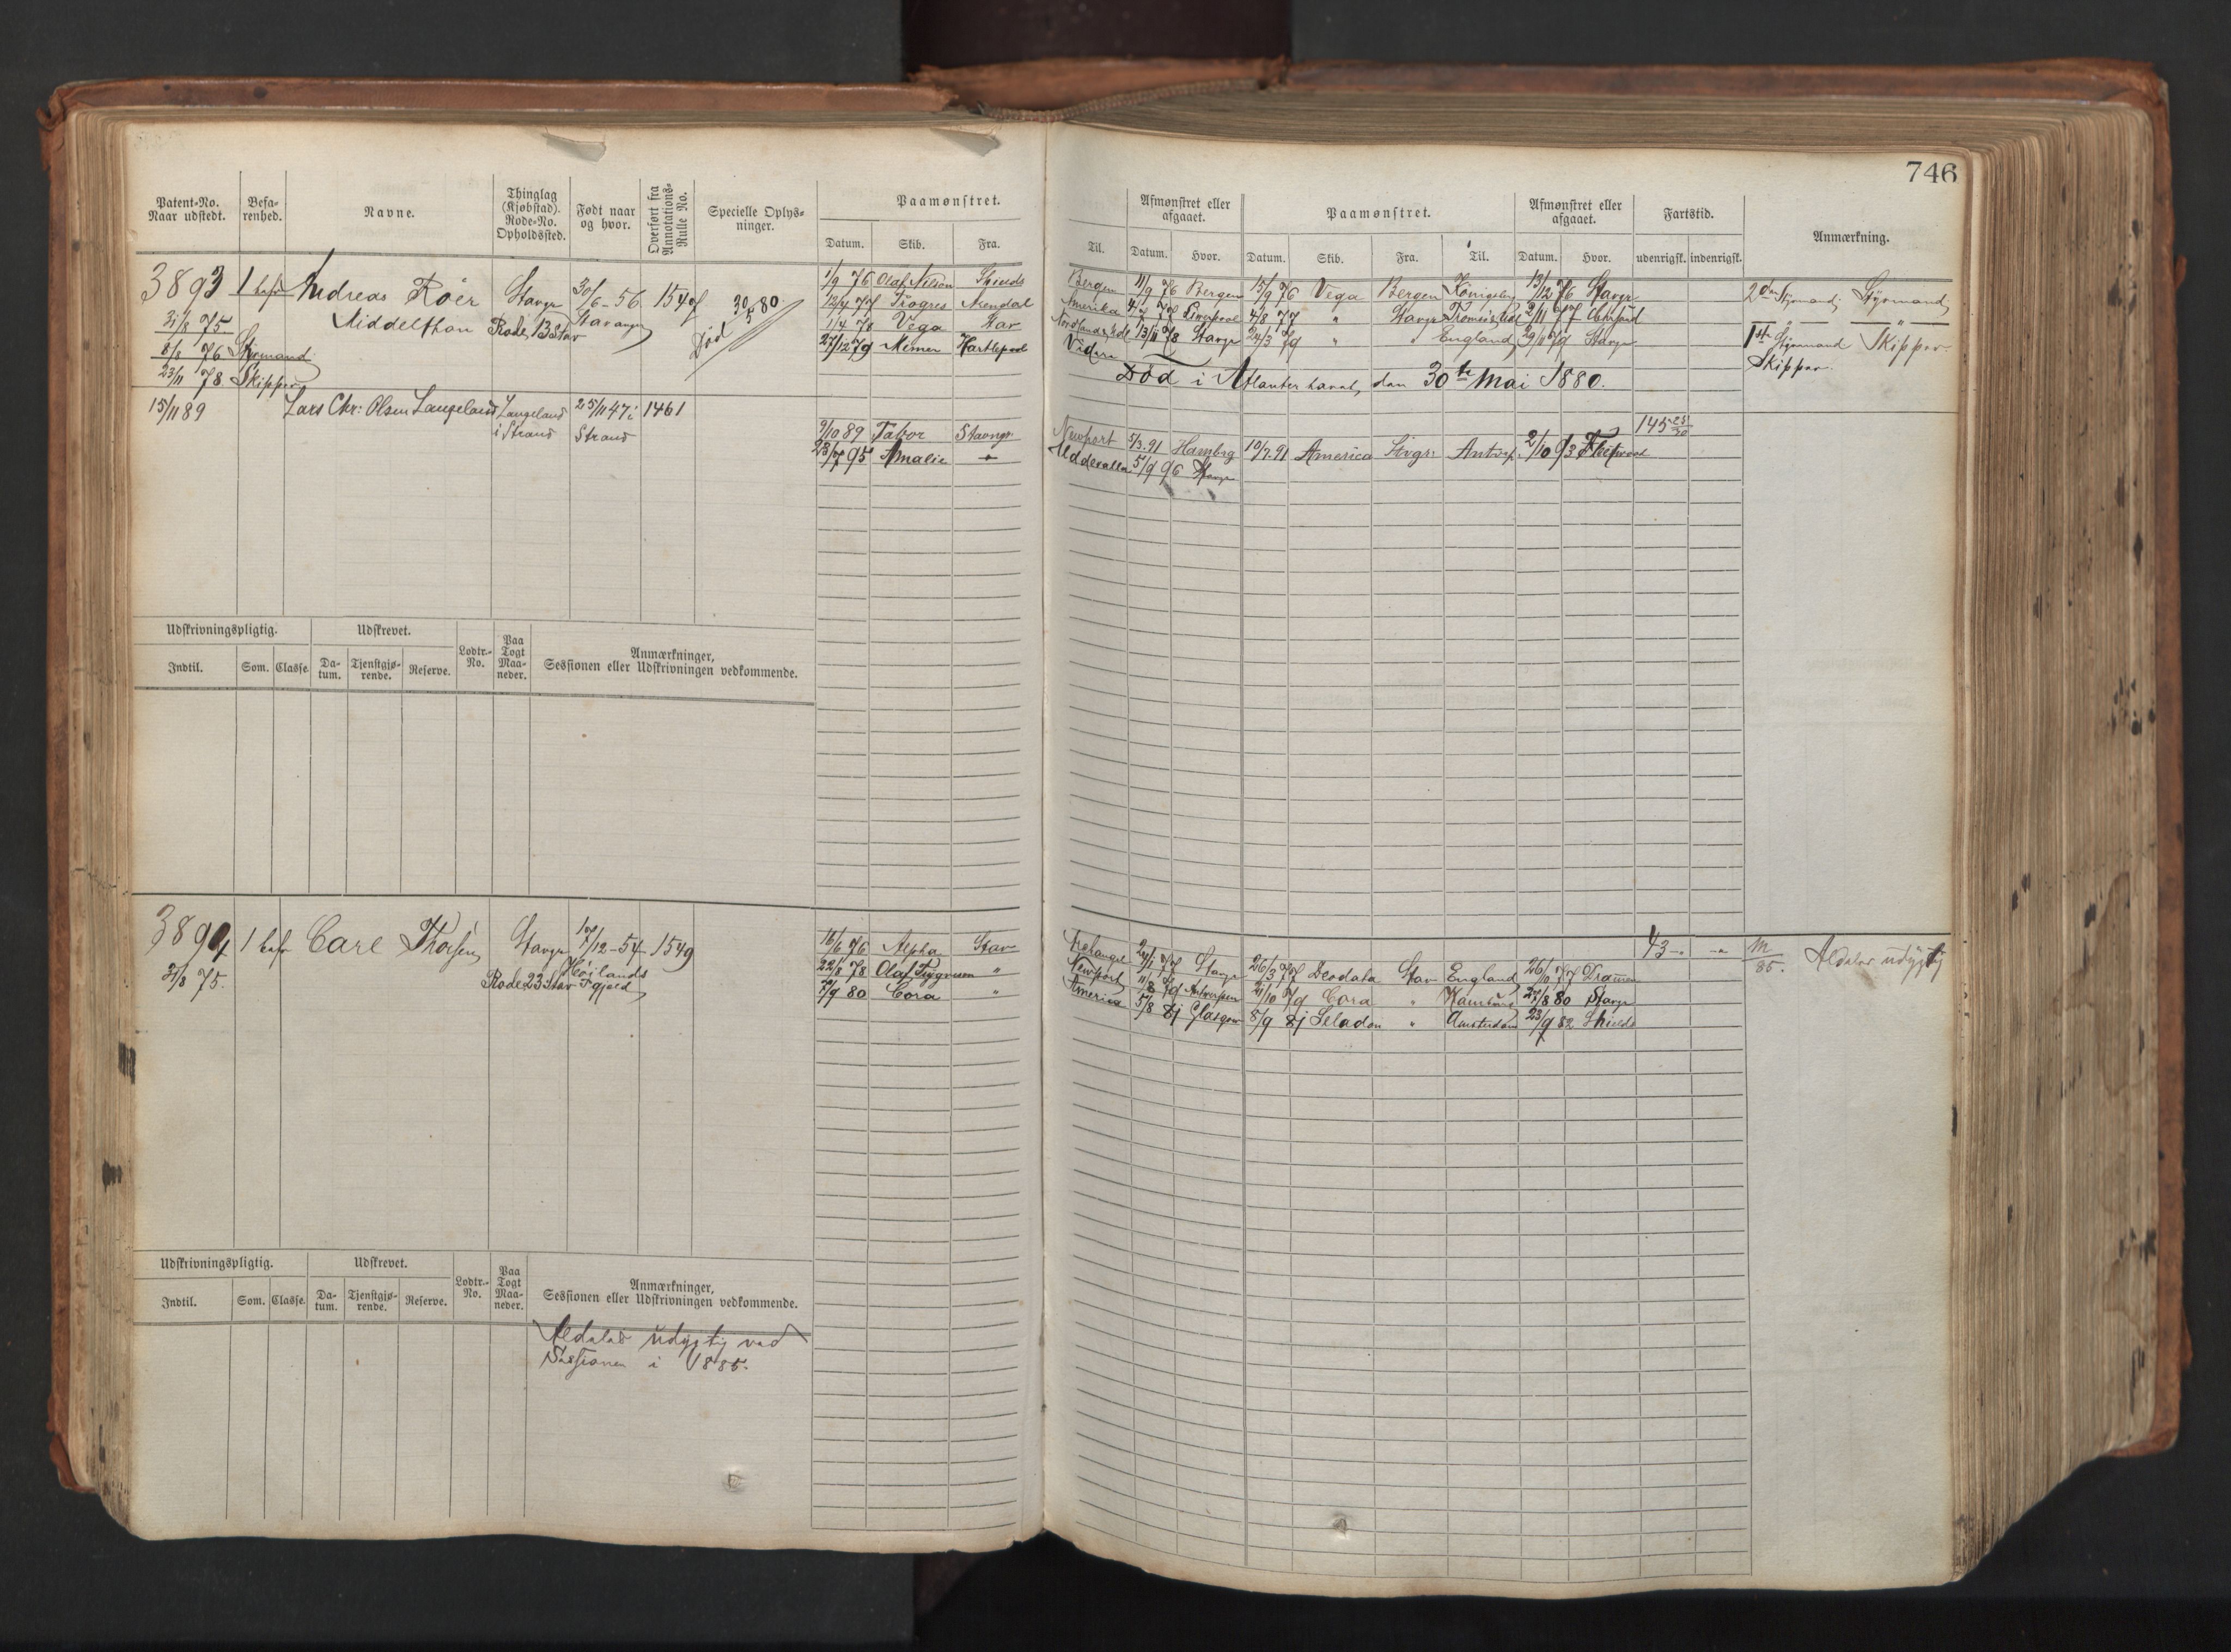 746
Patent-No. Naar udstedt. Befarenhed. Navne. Thinglag (Kjøbstad). Rode-No. Opholdssted. Født naar og hvor. Overført fra Annotations-Rulle No. Specielle Oplysninger. Paamønstret. Datum. Skib. Fra.
Til. Afmønstret eller afgaaet. Datum. Hvor. Paamønstret. Datum. Skib. Fra. Til. Afmønstret eller afgaaet. Datum. Hvor. Fartstid. udenrigsk. indenrigsk. Anmærkning.
3893 1 befr Andreas Röer Stavgr 30/6-56 1547 30/5 80 1/9 76 Olaf Nilsen Shields Bergen 11/9 76 Bergen 15/9 76 Vega Bergen Königsbg 13/12 76 Stavgr 2den Styrmand, Styrmand
31/8 75 Middelthon Rode 13 Stav Stavanger Död 12/4 77 Progres Arendal Amerika 4/7 77 Liverpool 4/8 77 " Stavgr 2/11 77
1/4 78 Vega Stav 13/11 78 Stavgr 24/3 79 " " England 29/11 79 Stavgr 1ste Styrmand Skipper
8/8 76 Styrmand 27/12 79 Memen Hartlepool Videre Skipper
23/11 78 Skipper Död i Atlanterhavet, den 30te Mai 1880.
15/11 89 Lars Chr: Olsen Langeland Langeland i Strand 25/11 47 i Strand 1461 145 25/30
9/10 89 Tabor Stavngr Newport 5/3.91 Hambrg 10/7.91 America Stvgr: Antwp. 2/10 93 Fleetwood
28/7 95 Amalie Uddevalla 5/9 96 Stavgr
Udskrivningspligtig. Udskrevet. Lodtr.-No. Paa Togt Maaneder. Anmærkninger, Sessionen eller Udskrivningen vedkommende.
Indtil. Som. Classe. Datum. Tjenstgjørende. Reserve.
3894 1 befr Carl Thorsen Stavgr 17/12-54 1549 16/6 76 Alpha Stav Stavgr 26/3 77 Deodata Stav England 26/10 77 Drammen 43 M/85. Aldeles udygtig
31/8 75. Rode 23 Stav Höilands Pgjeld 22/8 78 Olaf Trygvason " Newport 11/8 79 Antverpen 21/10 79 Cora " Hamburg 27/8 80 Stavgr
7/9 80 Cora " America 5/8 81 Glasgow 8/9 81 Seladon " Amsterdam 23/9 82 Shields
Udskrivningspligtig. Udskrevet. Lodtr.-No. Paa Togt Maaneder. Anmærkninger, Sessionen eller Udskrivningen vedkommende.
Indtil. Som. Classe. Datum. Tjenstgjørende. Reserve.
Aldeles udygtig ved
Sessionen i 1885.